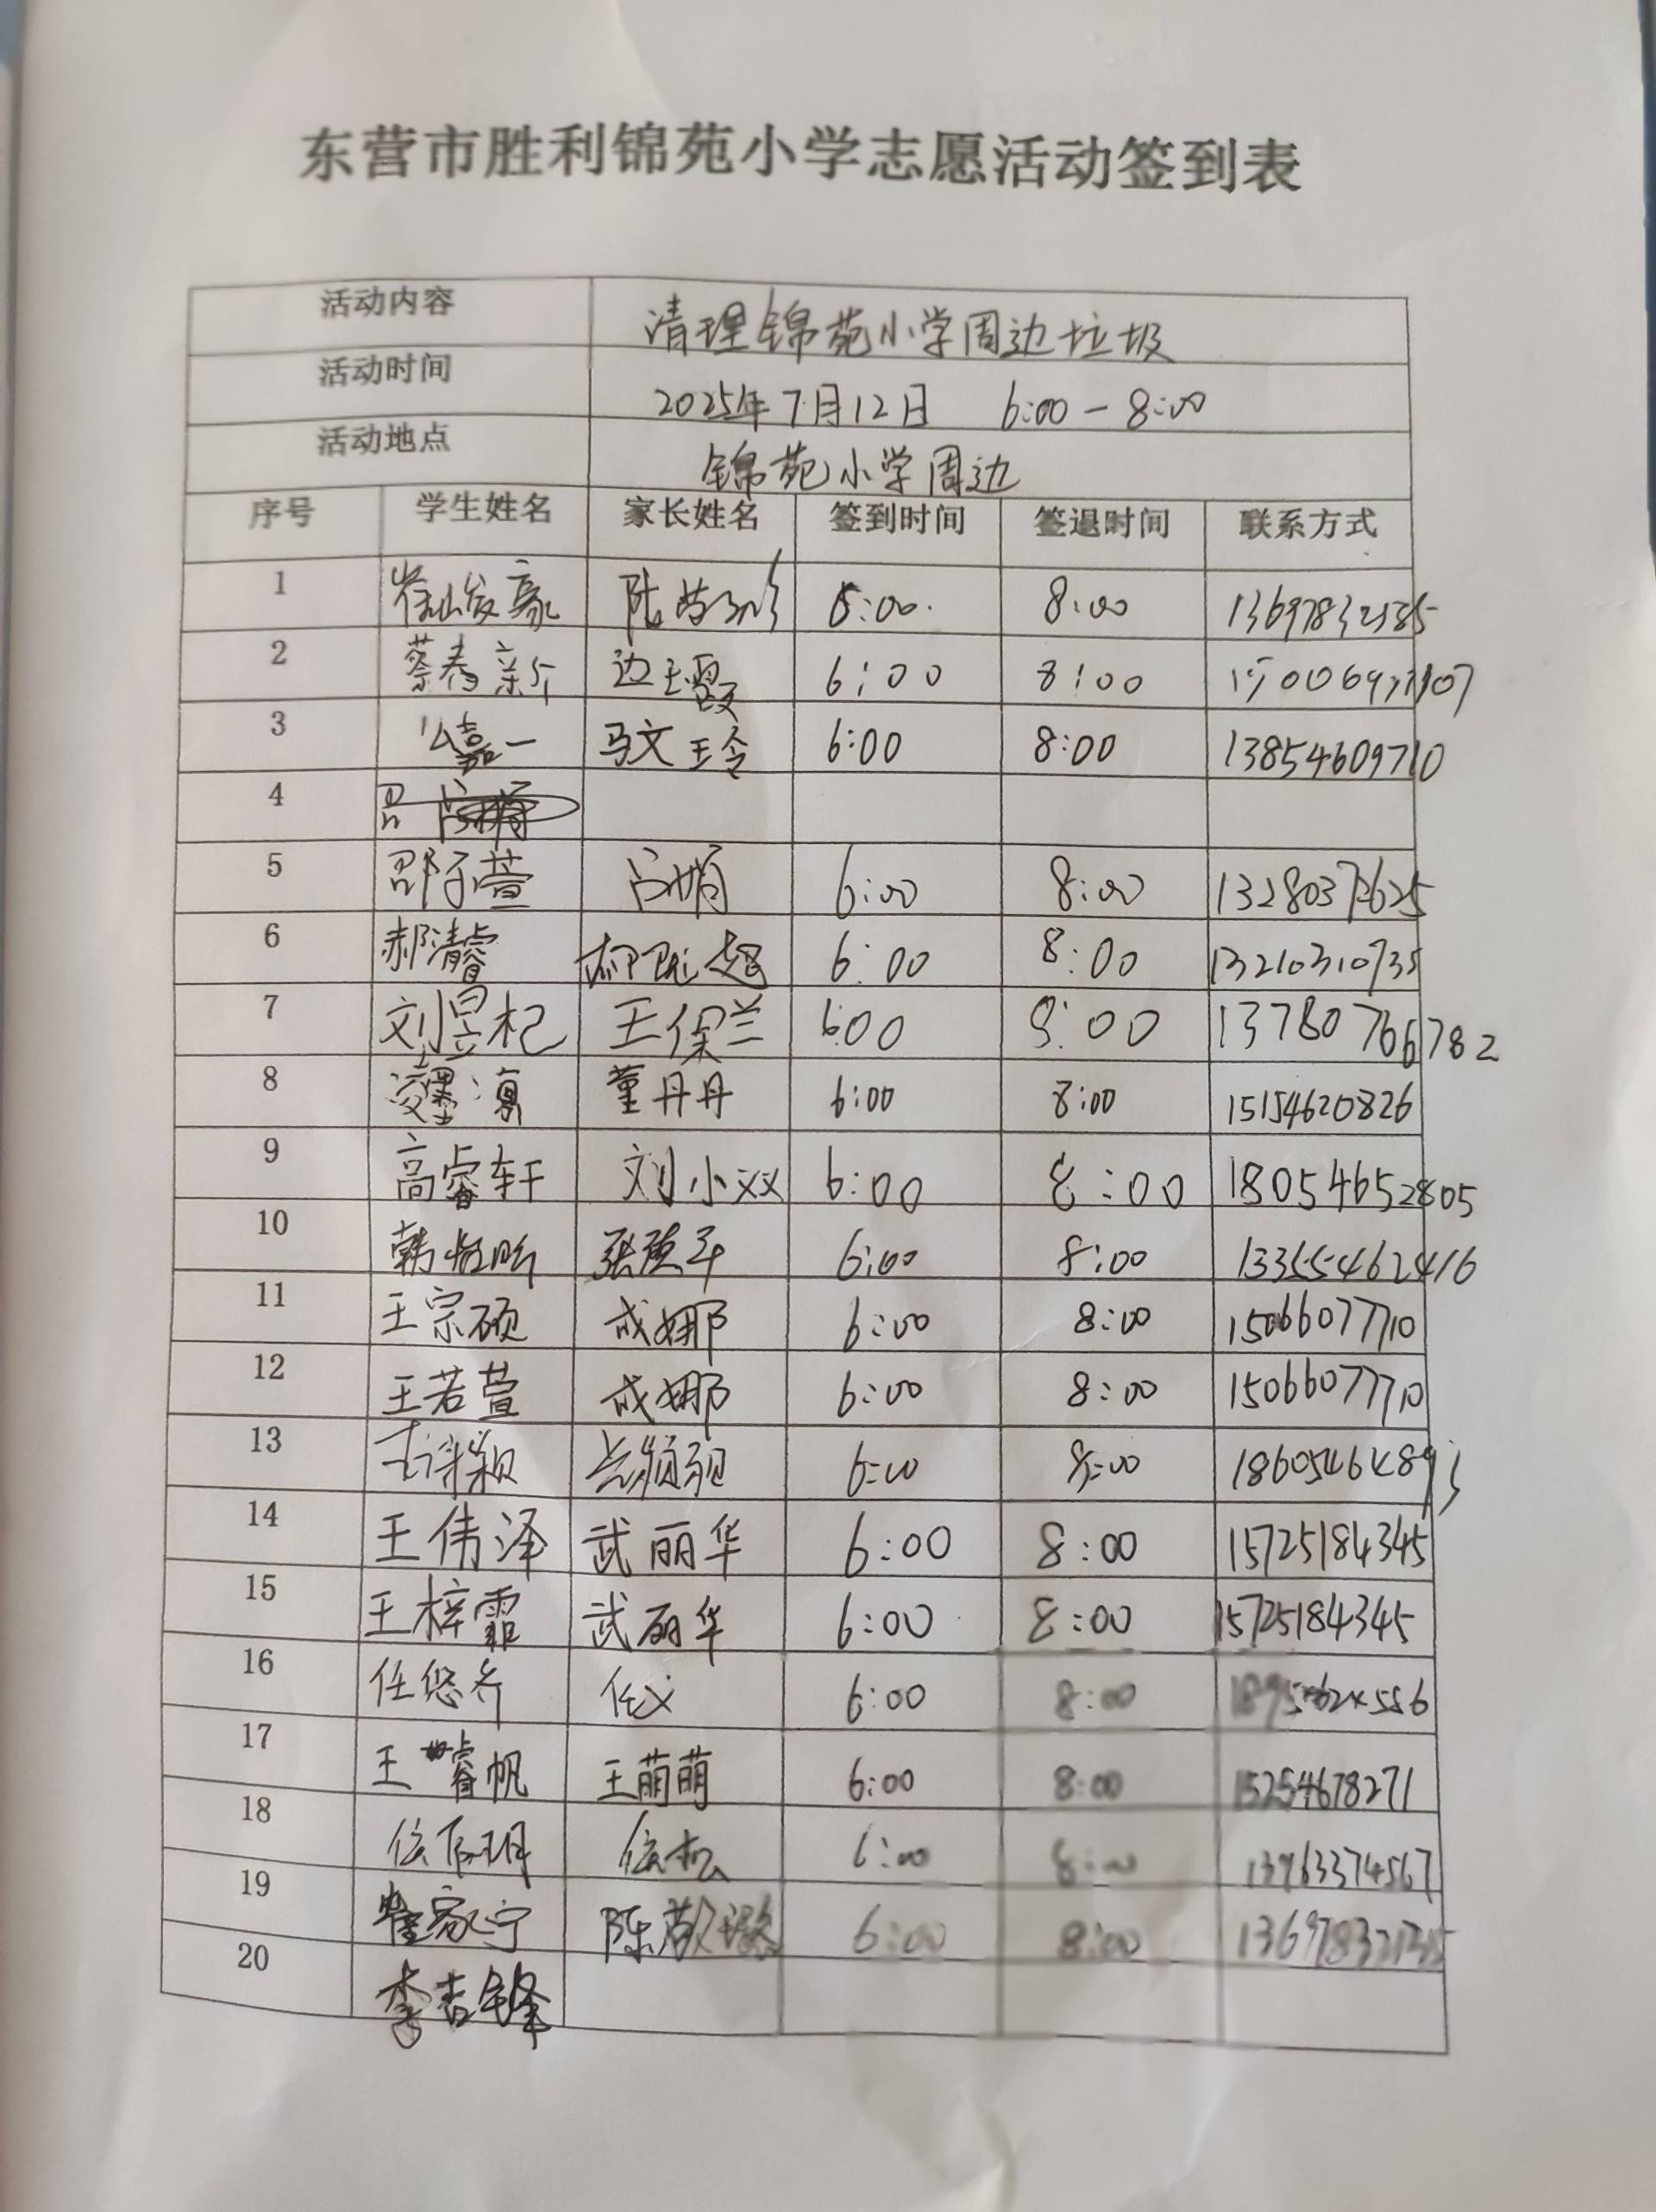 东营市胜利锦苑小学志愿活动签到表
活动内容 清理锦苑小学周边垃圾
活动时间 2025年7月12日 6:00-8:00
活动地点 锦苑小学周边
序号 学生姓名 家长姓名 签到时间 签退时间 联系方式
1 6:00 8:00
2 蔡春新 6:00 8:00
3 么嘉一 马文玲 6:00 8:00 13854609710
4
5 邵子萱 吕娟 6:00 8:00
6 郝清睿 6:00 8:00 13210310735
7 刘昱杞 王保兰 6:00 8:00
8 凌墨涵 董丹丹 6:00 8:00 15154620826
9 高睿轩 刘小双 6:00 8:00 18054652805
10 6:00 8:00
11 王宗硕 成娜 6:00 8:00 15066077710
12 王若萱 成娜 6:00 8:00 15066077710
13 6:00 8:00
14 王伟泽 武丽华 6:00 8:00 15725184345
15 王梓霏 武丽华 6:00 8:00 15725184345
16 6:00 8:00
17 王睿帆 王萌萌 6:00 8:00 15254678271
18 6:00 8:00
19 崔家宁 6:00 8:00
20 李吉锋